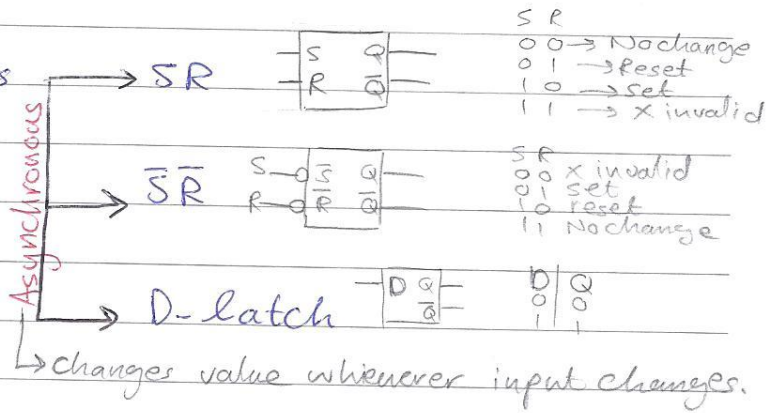 s
Asynchronous
SR
S Q
R Q̅
S R
0 0 → No change
0 1 → Reset
1 0 → set
1 1 → x invalid
S̅ R̅
S S̅ Q
R R̅ Q̅
S R
0 0 x invalid
0 1 set
1 0 reset
1 1 No change
D-latch
D Q
Q̅
D Q
0 0
1 1
↳ changes value whenever input changes.